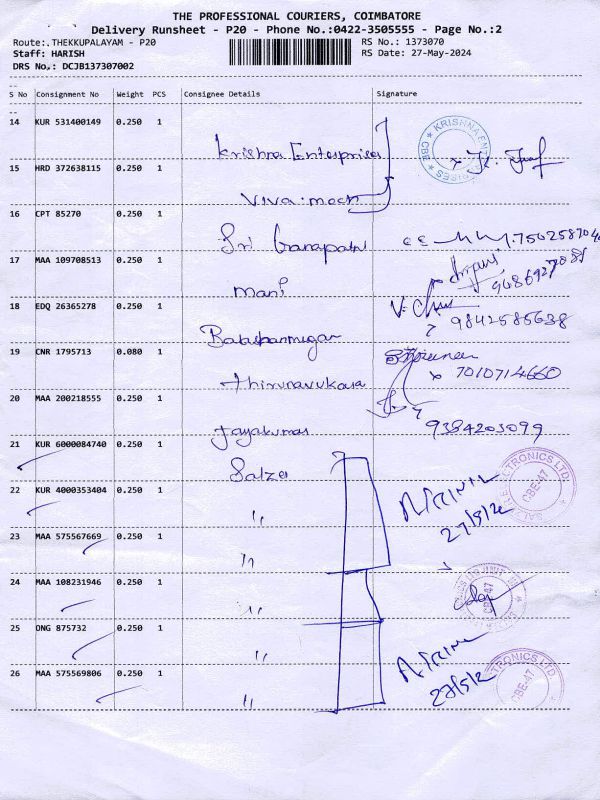 THE PROFESSIONAL COURIERS, COIMBATORE
Delivery Runsheet - P20 - Phone No.:0422-3505555 - Page No.:2
Route:.THEKKUPALAYAM - P20
RS No.: 1373070
Staff: HARISH
RS Date: 27-May-2024
DRS No.: DCJB137307002
S No Consignment No Weight PCS Consignee Details Signature
14 KUR 531400149 0.250 1
Krishna Enterprises
KRISHNA ENTERPRISES CBE
15 HRD 372638115 0.250 1
Viva mech
16 CPT 85270 0.250 1
Sri Ganapathi
17 MAA 109708513 0.250 1
Mani
18 EDQ 26365278 0.250 1
9842585638
19 CNR 1795713 0.080 1
Thirunavukara
7010714660
20 MAA 200218555 0.250 1
Jayakumar
9384203099
21 KUR 6000084740 0.250 1
Salzer
22 KUR 4000353404 0.250 1
"
CBE-47
23 MAA 575567669 0.250 1
"
24 MAA 108231946 0.250 1
"
CBE-47
25 DNG 875732 0.250 1
"
26 MAA 575569806 0.250 1
"
CBE-47